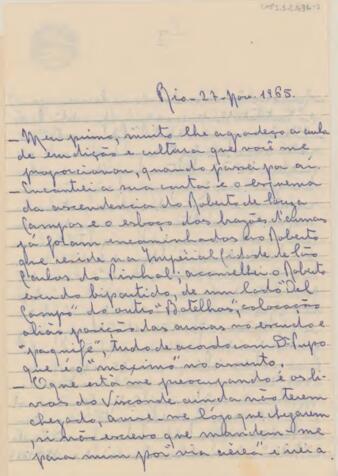 Rio - 27 - Nov. 1965.
- Meu primo, muito lhe agradeço a aula
de erudição e cultura que você me
proporcionou, quando passei por aí.
- Encontrei a sua carta e o esquema
da ascendencia do Roberto de Souza
Campos e o esboço dos brazões d'armas
já foram encaminhados ao Roberto
que reside na Imperial Cidade de São
Carlos do Pinhal; aconselhei o Roberto
escudo bipartido, de um lado "Del
Campo" do outro "Botelhos", colocação
aliás posição das armas no escudo e
"paquife", tudo de acordo com Dr. Pupo
que é o "maximo" no assunto.
- O que está me preocupando é os li-
vros do Visconde ainda não terem
chegado, avise-me lógo que chegarem,
si não escrevo que mandem-me
para mim por via aérea e irei a